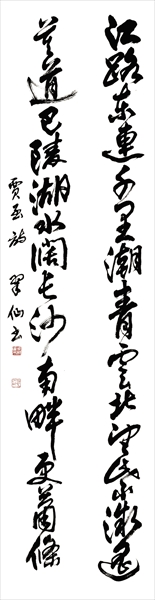 江路東連千里潮青雲北望紫微遙
莫道巴陵湖水闊長沙南畔更蕭條
賈至詩 翠仙書